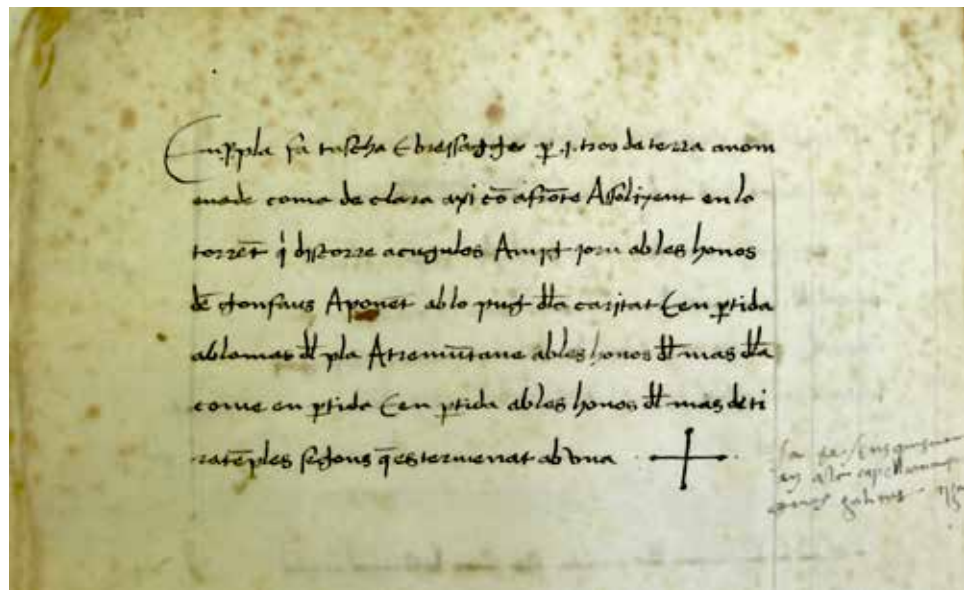 En P. pla fa tascha E brassatge p .j. tros de terra anom
enade coma de clara axi cō afrōte A Solixent en lo
torrēt q̇ discorre a cugulos A mig jorn ab les honos
dē gonfaus A ponēt ab lo pug dla caritat E en ptida
ab lo mas dl pla A tremūtane ab les honos dl mas dla
come en ptida E en ptida ab les honos dl mas de ti
ratēples segons q̄ es termenat ab vna +